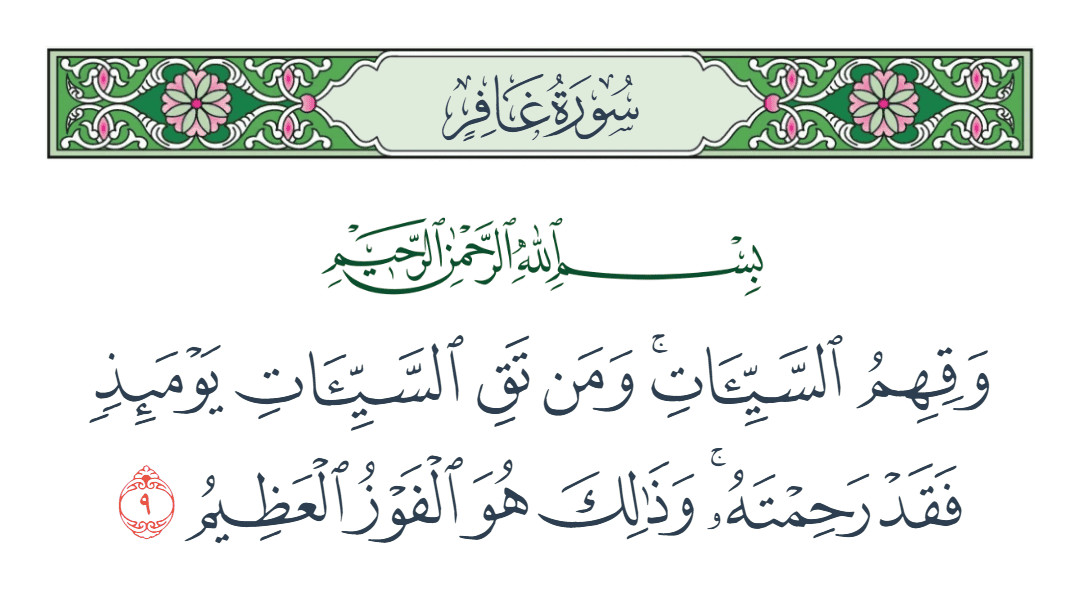 سُورَةُ غَافِرٍ
بِسْمِ ٱللَّهِ ٱلرَّحْمَٰنِ ٱلرَّحِيمِ
وَقِهِمُ ٱلسَّيِّـَٔاتِۚ وَمَن تَقِ ٱلسَّيِّـَٔاتِ يَوْمَئِذٍ
فَقَدْ رَحِمْتَهُۥۚ وَذَٰلِكَ هُوَ ٱلْفَوْزُ ٱلْعَظِيمُ ٩